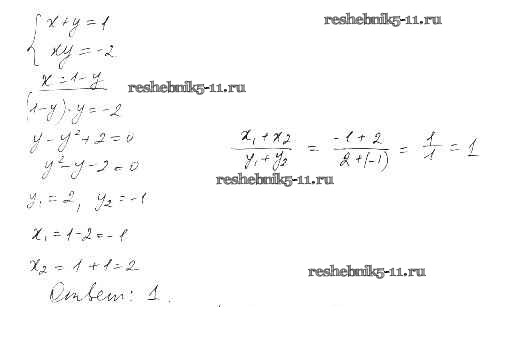 x+y=1 reshebnik5-11.ru
xy=-2
x=1-y reshebnik5-11.ru
(1-y)·y=-2
y-y²+2=0
y²-y-2=0
x₁+x₂ / y₁+y₂ = -1+2 / 2+(-1) = 1/1 = 1
reshebnik5-11.ru
y₁=2, y₂=-1
x₁=1-2=-1
x₂=1+1=2 reshebnik5-11.ru
Ответ: 1.